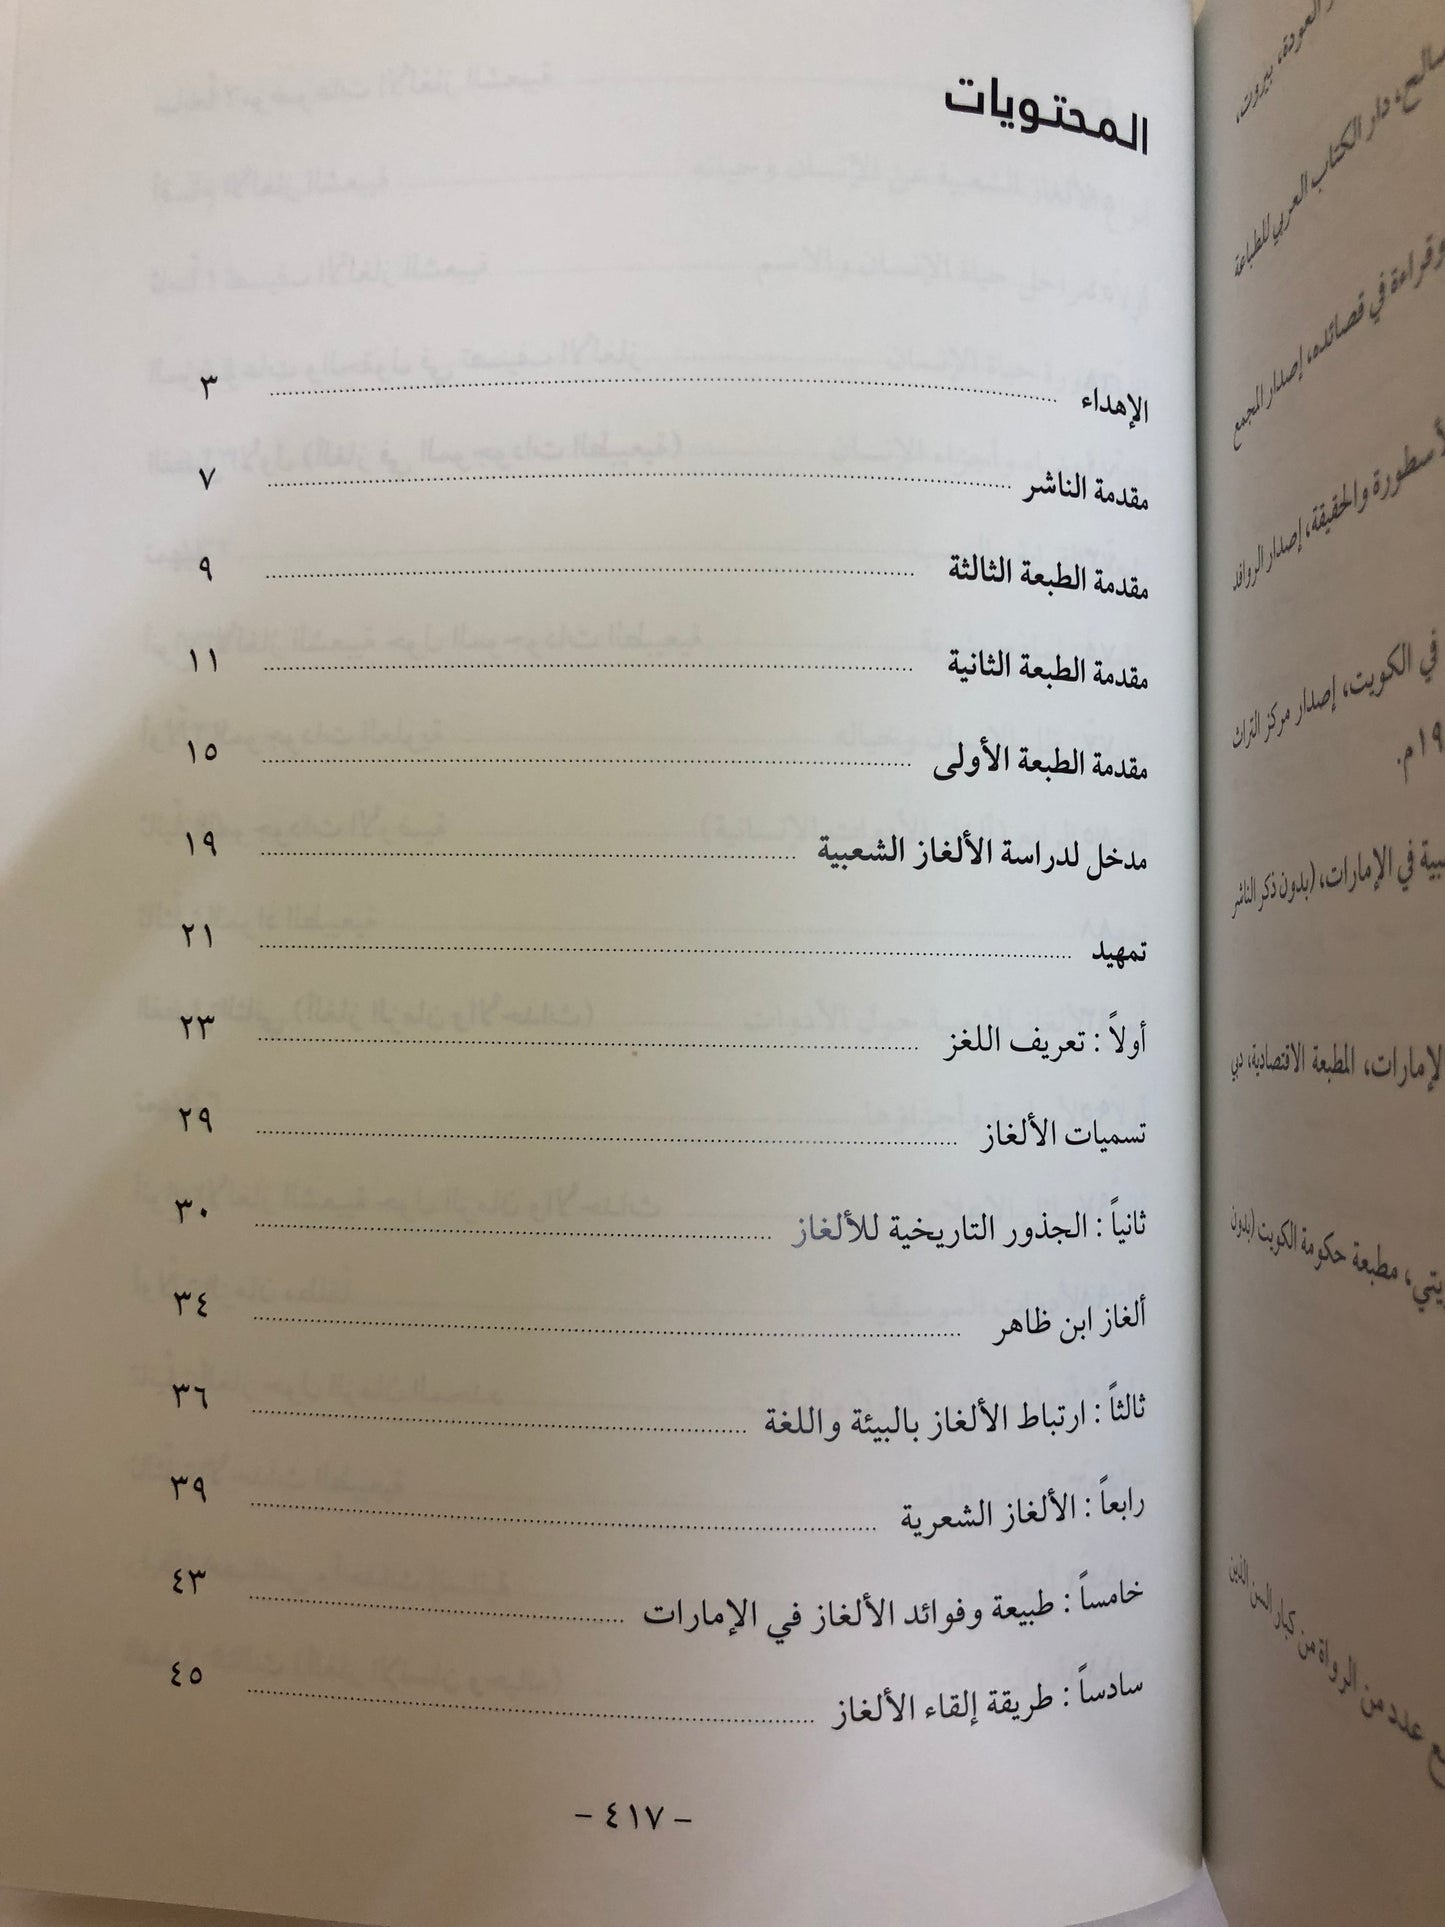 المحتويات
الإهداء ........ ٣
مقدمة الناشر ........ ٧
مقدمة الطبعة الثالثة ........ ٩
مقدمة الطبعة الثانية ........ ١١
مقدمة الطبعة الأولى ........ ١٥
مدخل لدراسة الألغاز الشعبية ........ ١٩
تمهيد ........ ٢١
أولاً : تعريف اللغز ........ ٢٣
تسميات الألغاز ........ ٢٩
ثانياً : الجذور التاريخية للألغاز ........ ٣٠
ألغاز ابن ظاهر ........ ٣٤
ثالثاً : ارتباط الألغاز بالبيئة واللغة ........ ٣٦
رابعاً : الألغاز الشعرية ........ ٣٩
خامساً : طبيعة وفوائد الألغاز في الإمارات ........ ٤٣
سادساً : طريقة إلقاء الألغاز ........ ٤٥
- ٤١٧ -
العودة، بيروت،
دار الكتاب العربي للطباعة
وقراءة في قصائده، إصدار المجمع
والحقيقة، إصدار الروافد
في الكويت، إصدار مركز التراث
في الإمارات، (بدون ذكر الناشر
المطبعة الاقتصادية، دبي
مطبعة حكومة الكويت (بدون
عدد من الرواة من كبار السن الذين